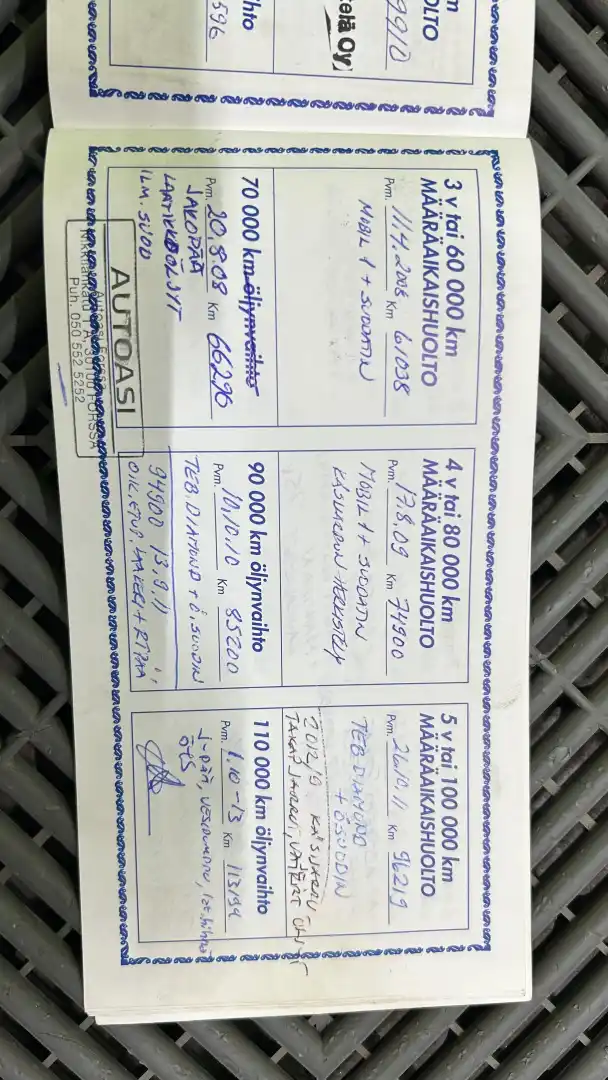 OLTO
9910
kelä Oy
ihto
596
3 v tai 60 000 km
MÄÄRÄAIKAISHUOLTO
Pvm. 11.4.2008 Km 61038
MOBIL 1 + SUODATIN
70 000 km öljynvaihto
Pvm. 20.8.08 Km 66296
JAKOPÄÄ
LAATIKKOÖLJYT
ILM. SUOD
AUTOASI
FORSSA
Puh. 050 552 5252
4 v tai 80 000 km
MÄÄRÄAIKAISHUOLTO
Pvm. 17.8.09 Km 74900
MOBIL 1 + SUODATIN
KÄSIJARRUN
90 000 km öljynvaihto
Pvm. 10.10.10 Km 85200
TEB. DIAMOND + Ö.SUODIN
94900 13.9.11
OIK. ETUP.
5 v tai 100 000 km
MÄÄRÄAIKAISHUOLTO
Pvm. 26.10.11 Km 96219
TEB DIAMOND
+ ÖSUODIN
2012/9 KÄSIJARRU,
110 000 km öljynvaihto
Pvm. 1.10-13 Km 113194
J-pää, vesipumppu, lat.hihna
ÖTS